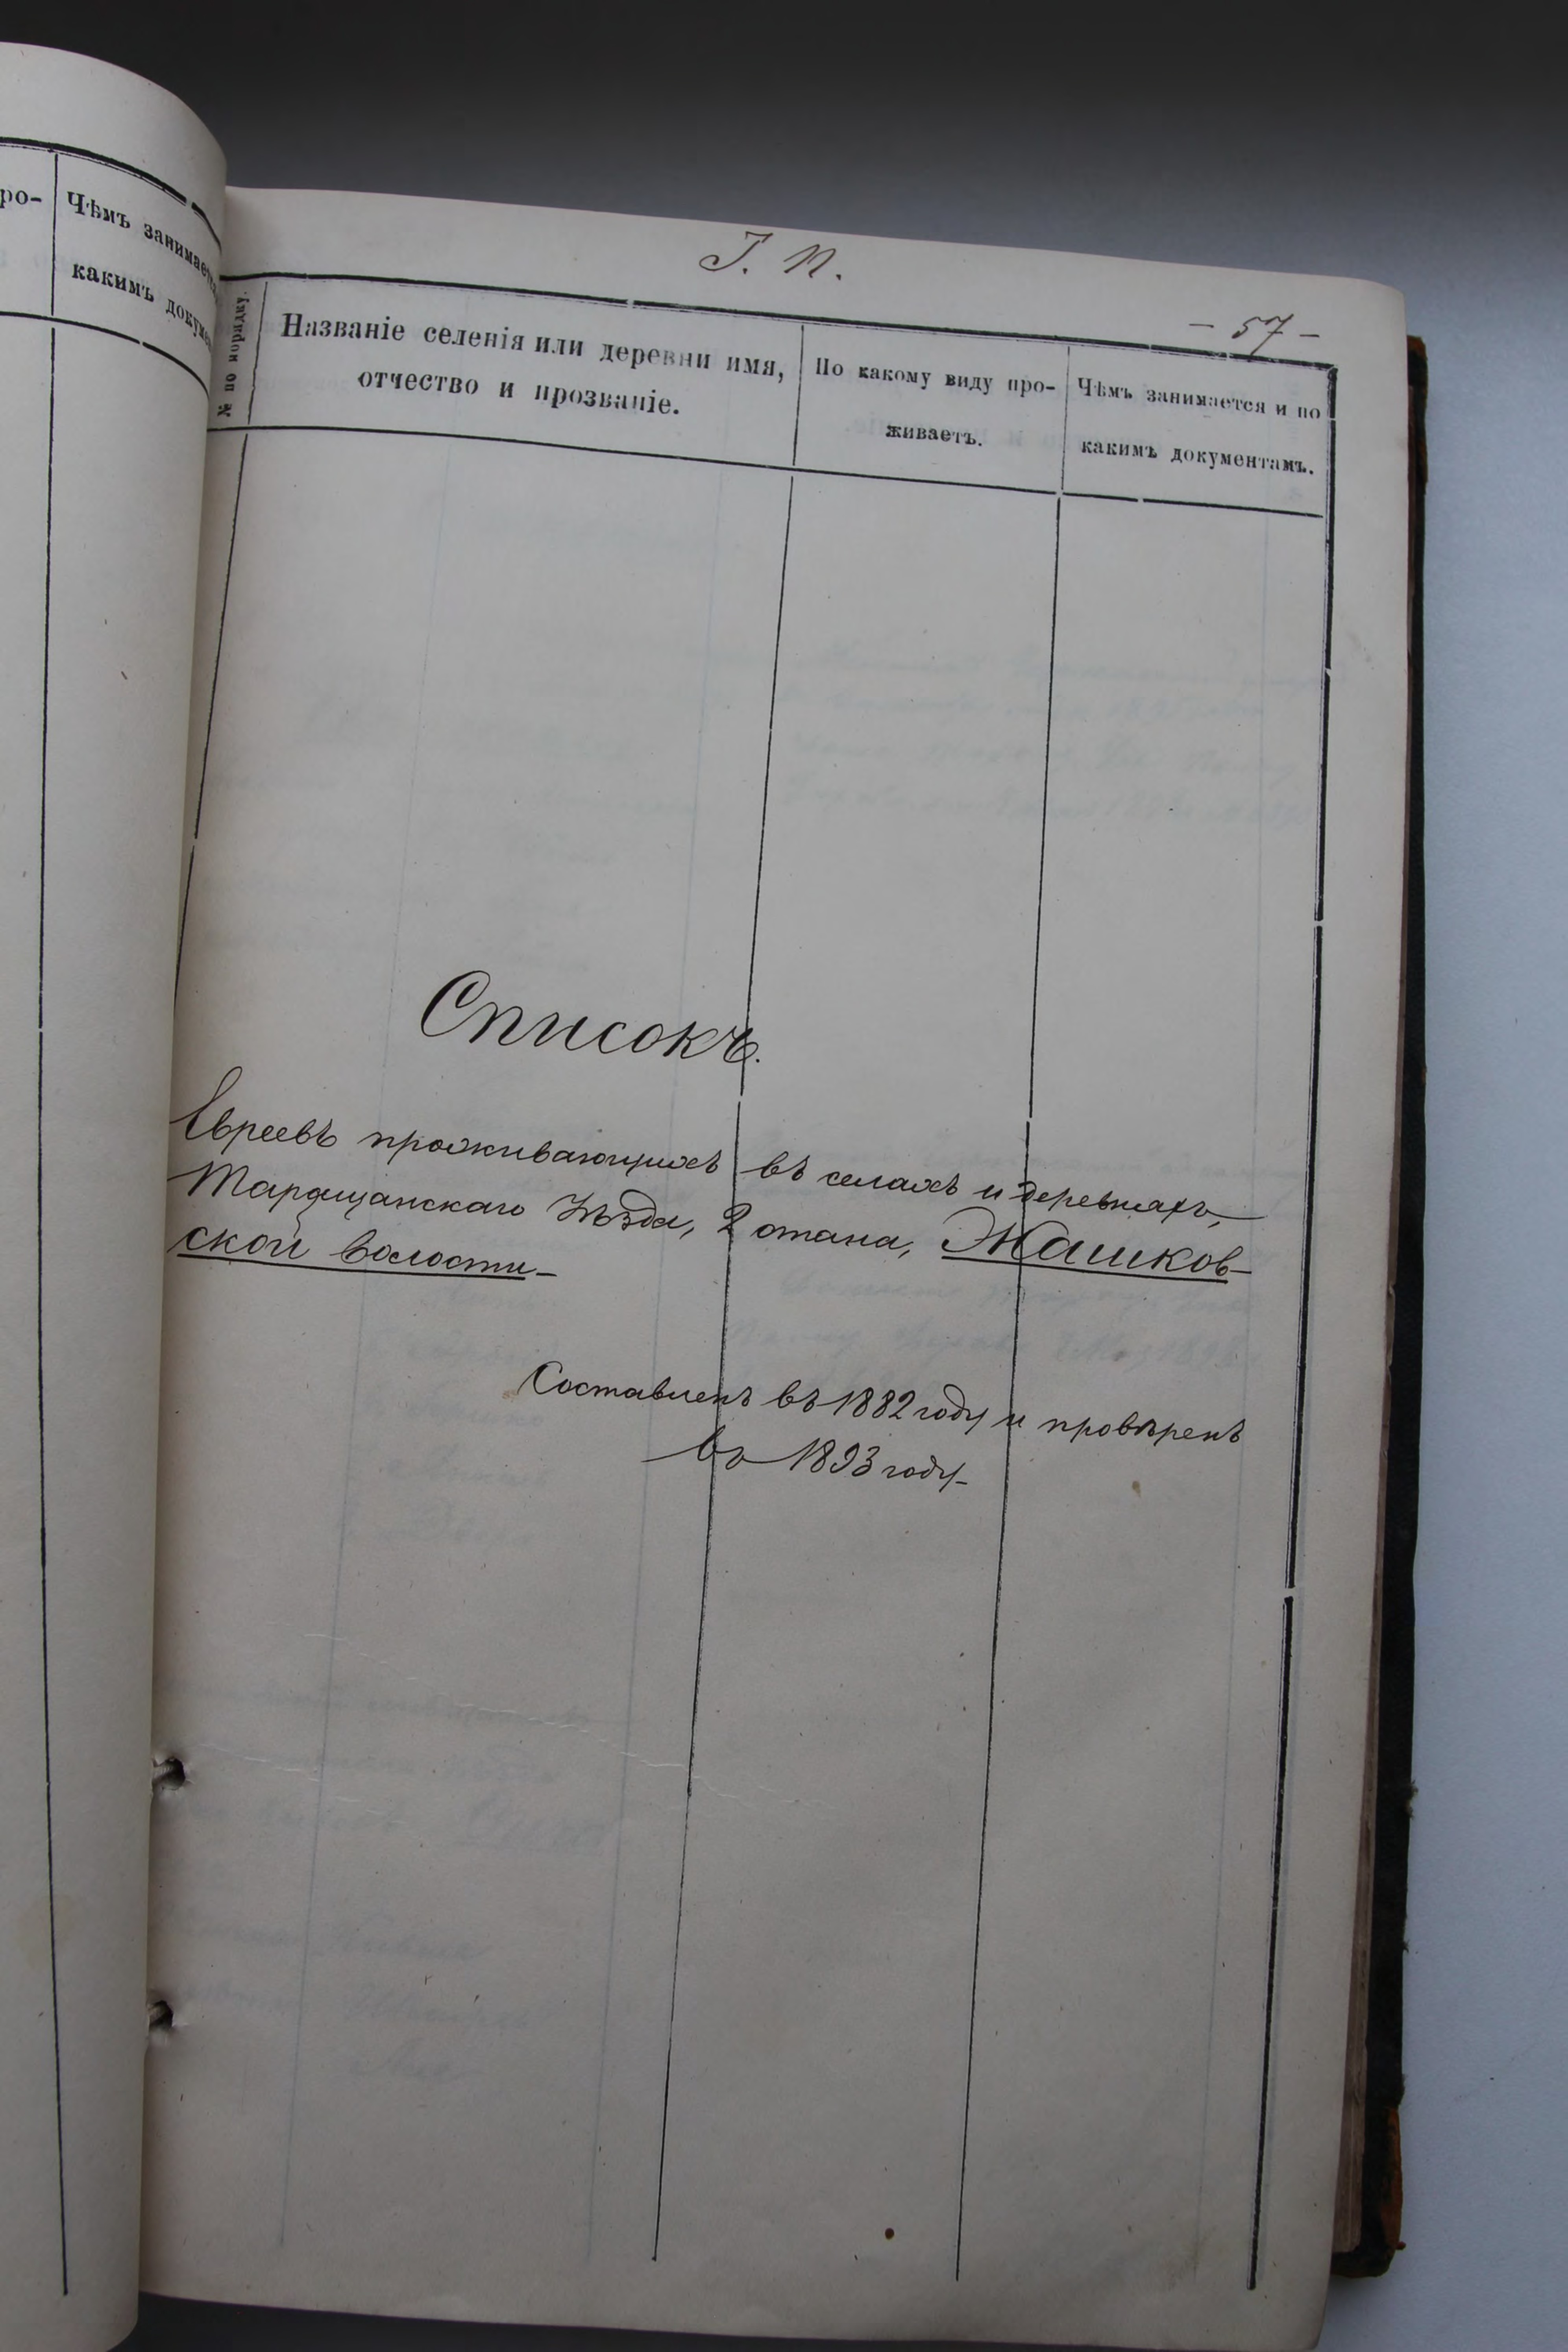 ро-
Чѣмъ занимает
какимъ докумен
І. П.
- 57 -
№ по порядку.
Названіе селенія или деревни имя,
отчество и прозваніе.
По какому виду про-
живаетъ.
Чѣмъ занимается и по
какимъ документамъ.
Списокъ.
Евреевъ проживающихъ въ селахъ и деревняхъ,
Таращанскаго Уѣзда, 2 стана, Жашков-
ской волости-
Составленъ въ 1882 году и провѣренъ
въ 1893 году-